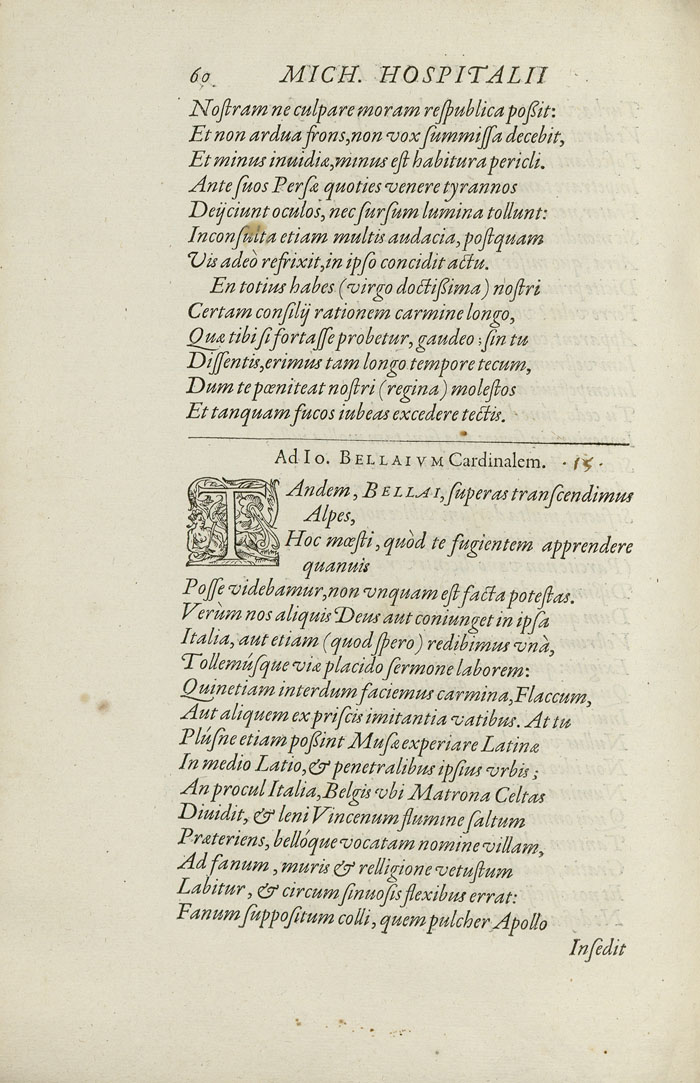 60 MICH. HOSPITALII
Nostram ne culpare moram respublica poßit:
Et non ardua frons, non vox summissa decebit,
Et minus inuidiæ, minus est habitura pericli.
Ante suos Persæ quoties venere tyrannos
Deijciunt oculos, nec sursum lumina tollunt:
Inconsulta etiam multis audacia, postquam
Vis adeò refrixit, in ipso concidit actu.
En totius habes (virgo doctißima) nostri
Certam consilij rationem carmine longo,
Quæ tibi si fortasse probetur, gaudeo; sin tu
Dissentis, erimus tam longo tempore tecum,
Dum te pœniteat nostri (regina) molestos
Et tanquam fucos iubeas excedere tectis.
Ad Io. BELLAIVM Cardinalem. · 15 ·
TAndem, BELLAI, superas transcendimus
Alpes,
Hoc mœsti, quòd te fugientem apprendere
quanuis
Posse videbamur, non vnquam est facta potestas.
Verùm nos aliquis Deus aut coniunget in ipsa
Italia, aut etiam (quod spero) redibimus vnà,
Tollemúsque viæ placido sermone laborem:
Quinetiam interdum faciemus carmina, Flaccum,
Aut aliquem ex priscis imitantia vatibus. At tu
Plúsne etiam poßint Musæ experiare Latinæ
In medio Latio, & penetralibus ipsius vrbis;
An procul Italia, Belgis vbi Matrona Celtas
Diuidit, & leni Vincenum flumine saltum
Præteriens, bellóque vocatam nomine villam,
Ad fanum, muris & relligione vetustum
Labitur, & circum sinuosis flexibus errat:
Fanum suppositum colli, quem pulcher Apollo
Insedit